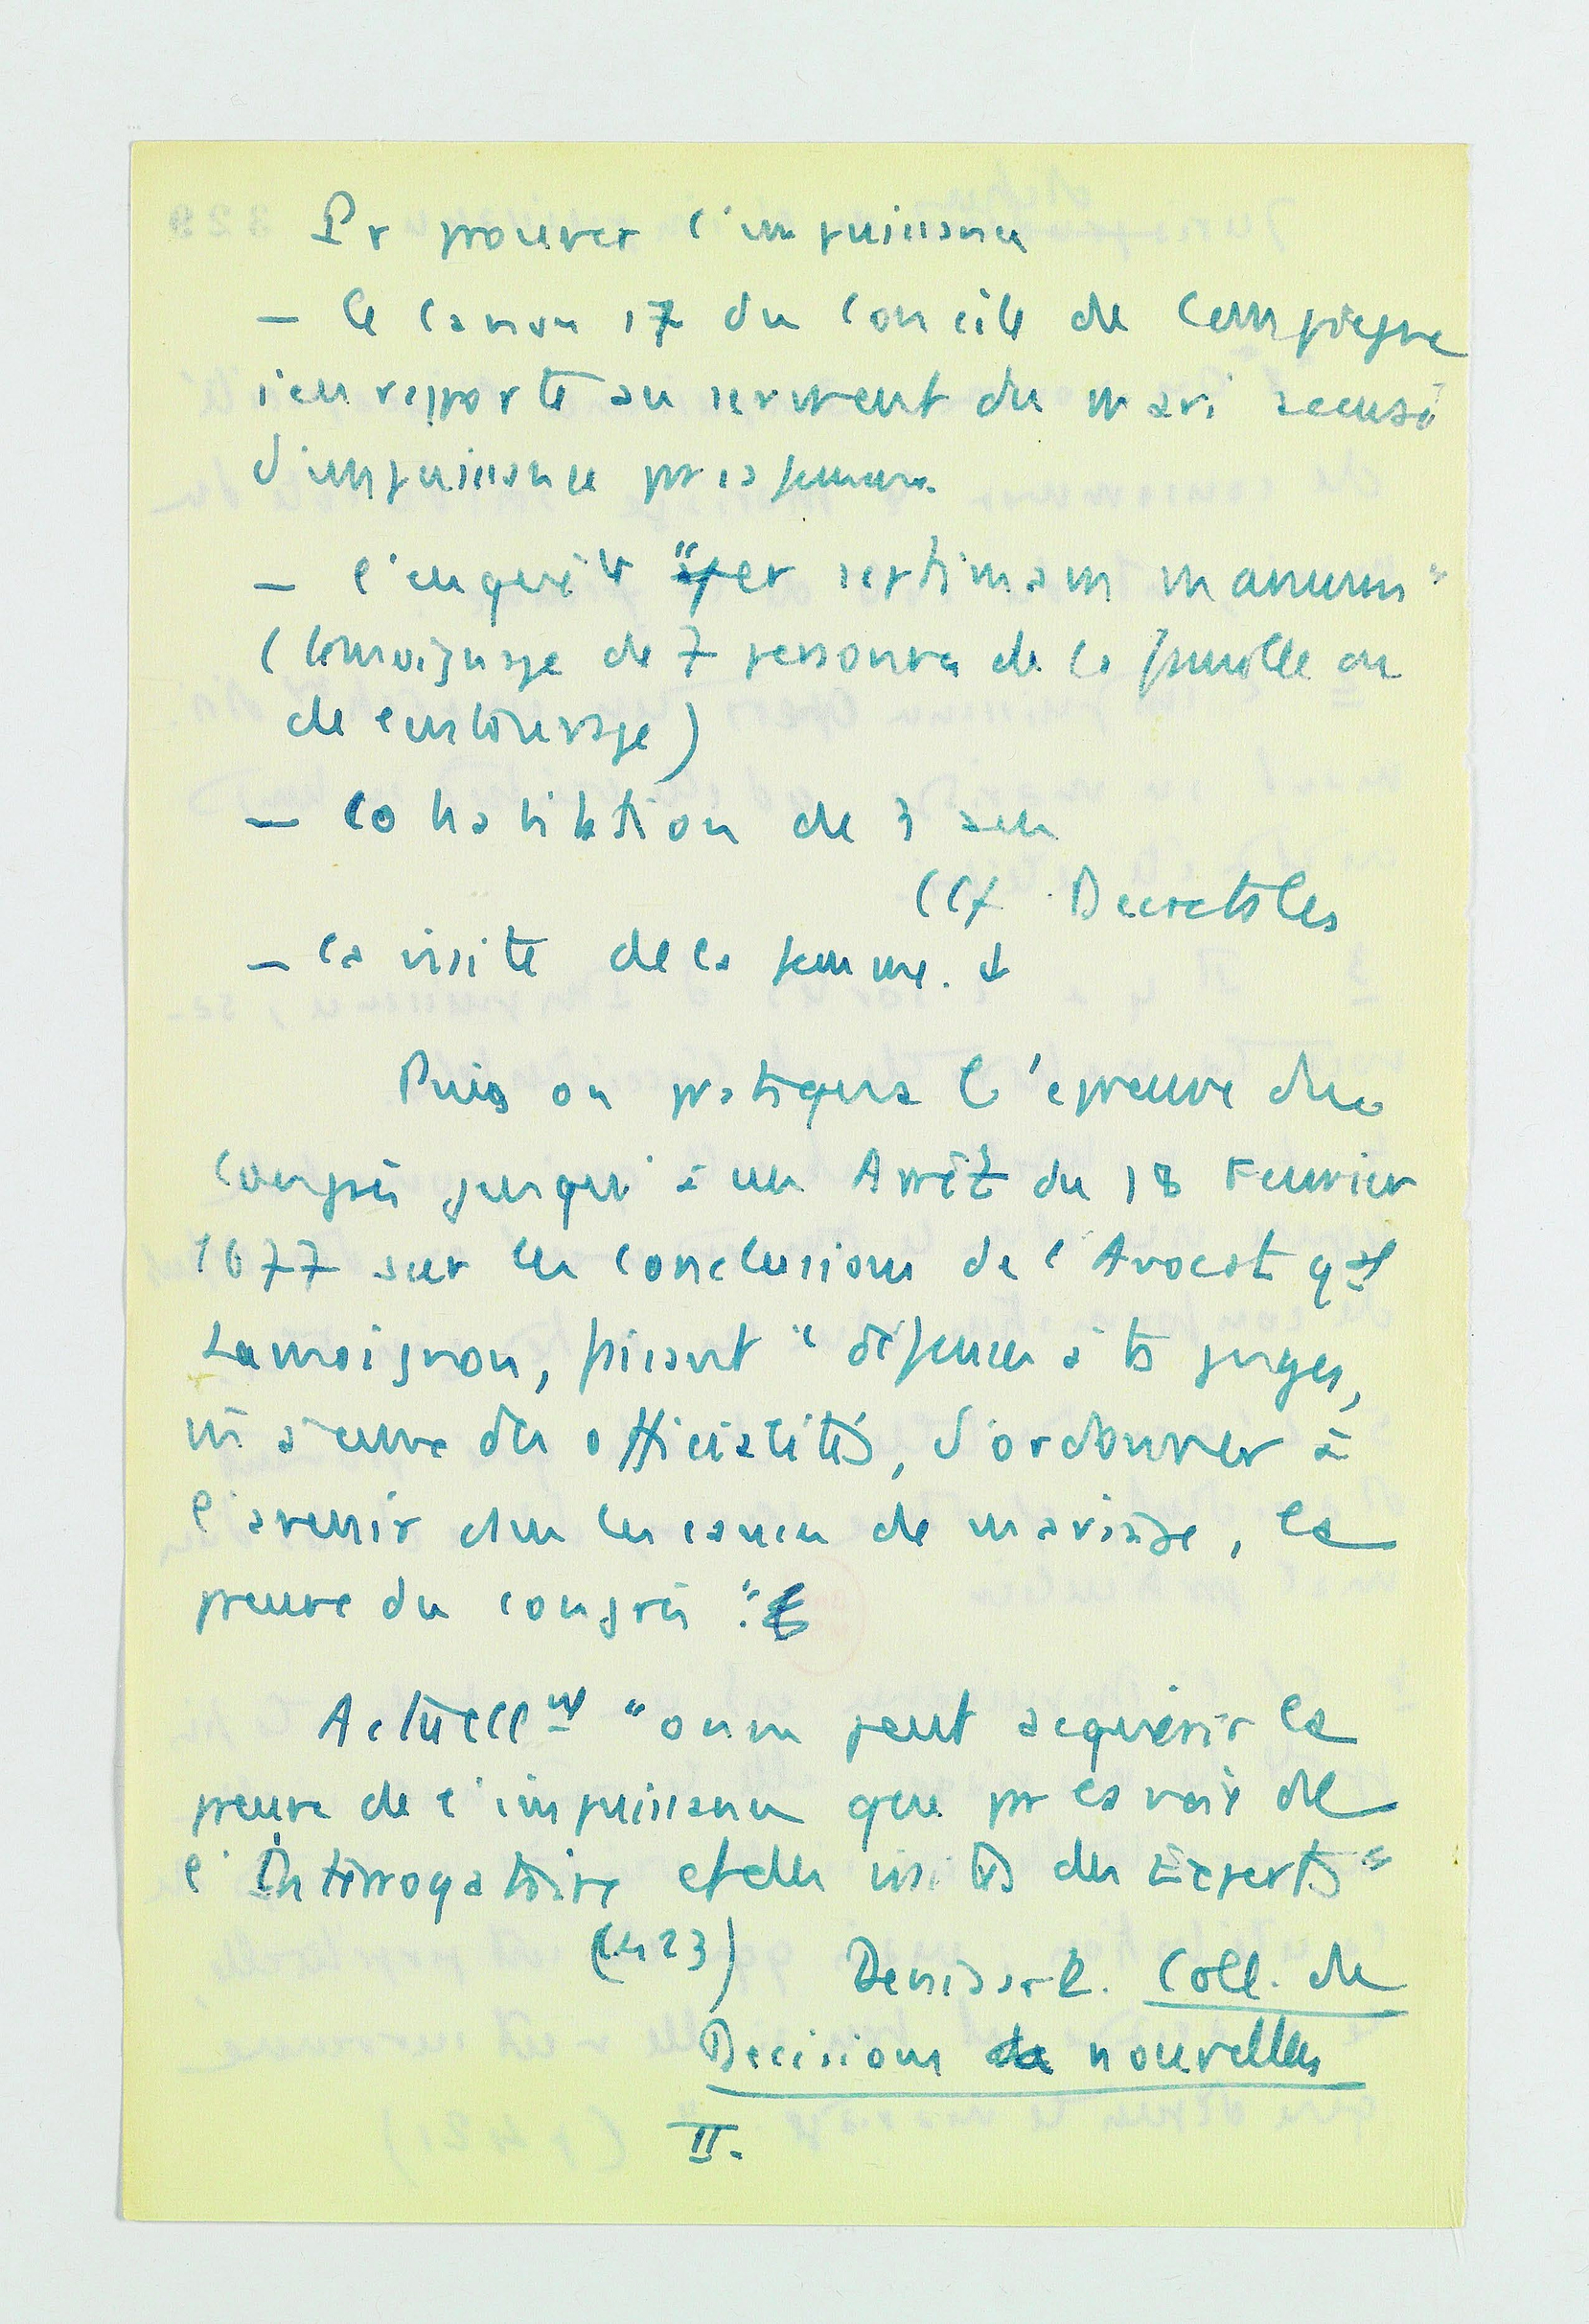 Pr prouver l'impuissance
— le canon 17 du Concile de Compiègne
s'en rapporte au serment du mari accusé
d'impuissance par sa femme.
— l'enquête "per septimam manum"
(témoignage de 7 personnes de la famille ou
de entourage)
— cohabitation de 3 ans
(Cf Decretales
— la visite de la femme.
Puis on pratiqua l'épreuve du
Congrès jusqu'à un Arrêt du 18 Fevrier
1677 sur les conclusions de l'Avocat gal
Lamoignon, faisant "défenses à ts juges,
m̂ à ceux des officialités, d'ordonner à
l'avenir dans les causes de mariage, la
preuve du congrès".
Actuellmt "on ne peut acquérir la
preuve de l'impuissance que par la voie de
l'Interrogatoire et des visites des Experts"
(423) Denisart. Coll. de
Decisions nouvelles
II.